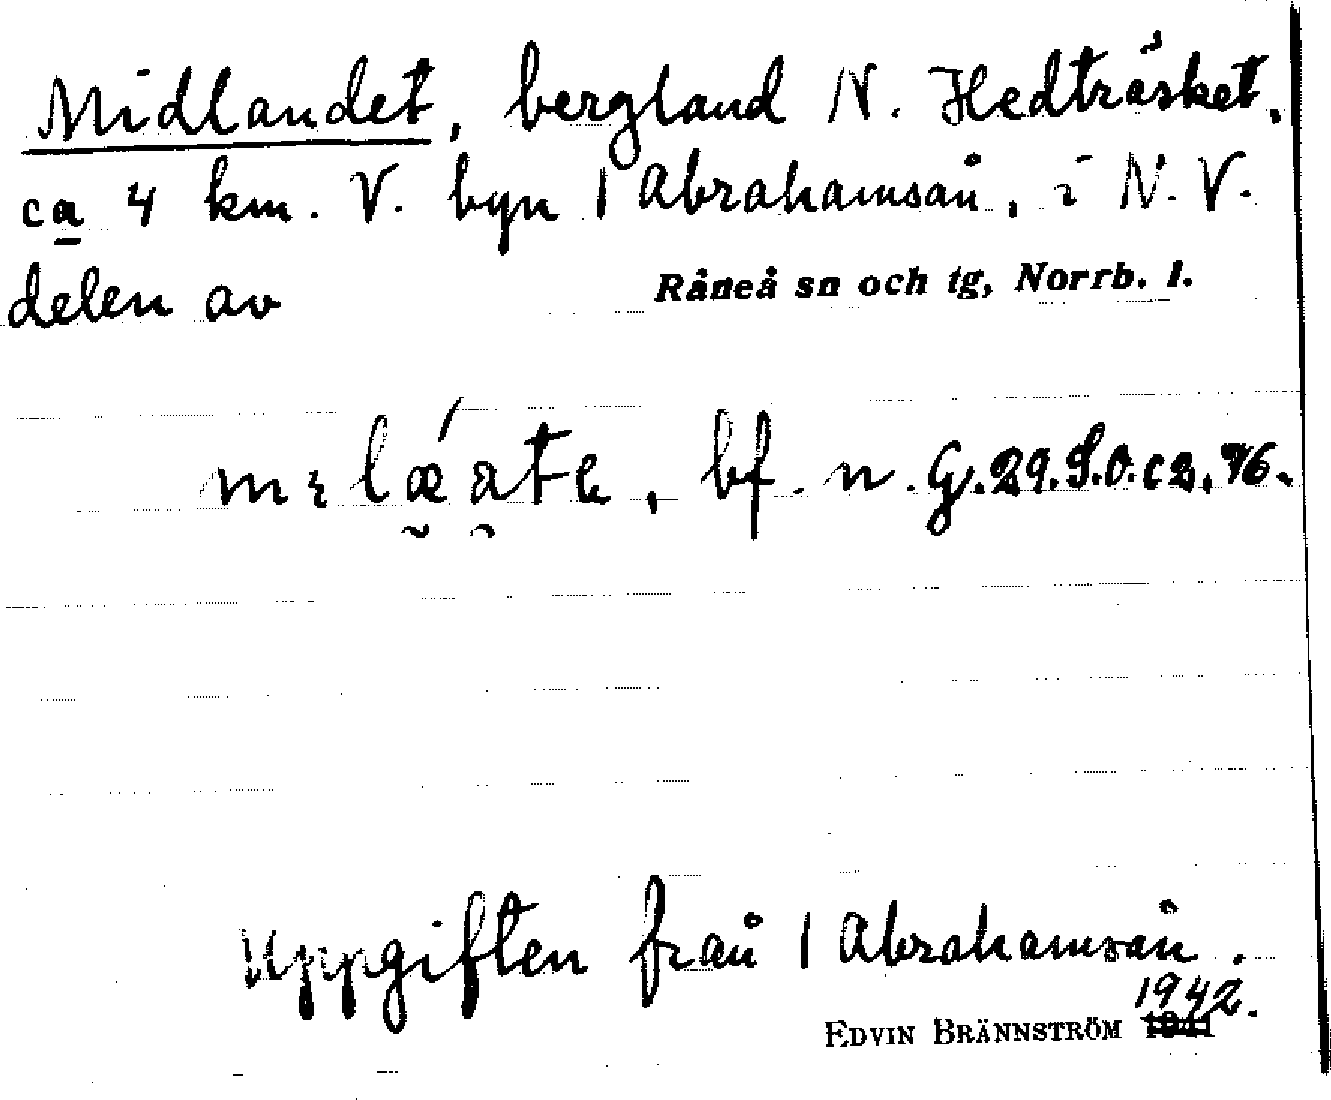 Midlandet, bergland N. Hedträsket,
ca 4 km. V. byn / Abrahamsån, i N.V.
delen av Råneå sn och tg, Norrb. l.
bf. n. G.29.S.O.c2,
Uppgiften från / Abrahamsån.
1942.
EDVIN BRÄNNSTRÖM 1941